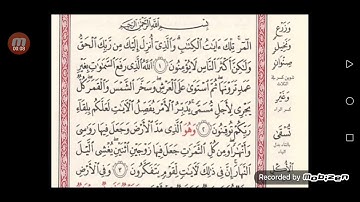 بِسْمِ اللَّهِ الرَّحْمَٰنِ الرَّحِيمِ
الٓمٓر تِلْكَ ءَايَٰتُ ٱلْكِتَٰبِ وَٱلَّذِىٓ أُنزِلَ إِلَيْكَ مِن رَّبِّكَ ٱلْحَقُّ
وَلَٰكِنَّ أَكْثَرَ ٱلنَّاسِ لَا يُؤْمِنُونَ ١ ٱللَّهُ ٱلَّذِى رَفَعَ ٱلسَّمَٰوَٰتِ بِغَيْرِ
عَمَدٍ تَرَوْنَهَا ثُمَّ ٱسْتَوَىٰ عَلَى ٱلْعَرْشِ وَسَخَّرَ ٱلشَّمْسَ وَٱلْقَمَرَ كُلٌّ
يَجْرِى لِأَجَلٍ مُّسَمًّى يُدَبِّرُ ٱلْأَمْرَ يُفَصِّلُ ٱلْءَايَٰتِ لَعَلَّكُم بِلِقَآءِ
رَبِّكُمْ تُوقِنُونَ ٢ وَهُوَ ٱلَّذِى مَدَّ ٱلْأَرْضَ وَجَعَلَ فِيهَا رَوَٰسِىَ
وَأَنْهَٰرًا وَمِن كُلِّ ٱلثَّمَرَٰتِ جَعَلَ فِيهَا زَوْجَيْنِ ٱثْنَيْنِ يُغْشِى ٱلَّيْلَ
ٱلنَّهَارَ إِنَّ فِى ذَٰلِكَ لَءَايَٰتٍ لِّقَوْمٍ يَتَفَكَّرُونَ ٣ وَفِى ٱلْأَرْضِ
وَزَرْعٌ
وَنَخِيلٌ
صِنْوَانٌ
وَغَيْرُ
تُسْقَىٰ
00:08
Recorded by
Mobizen